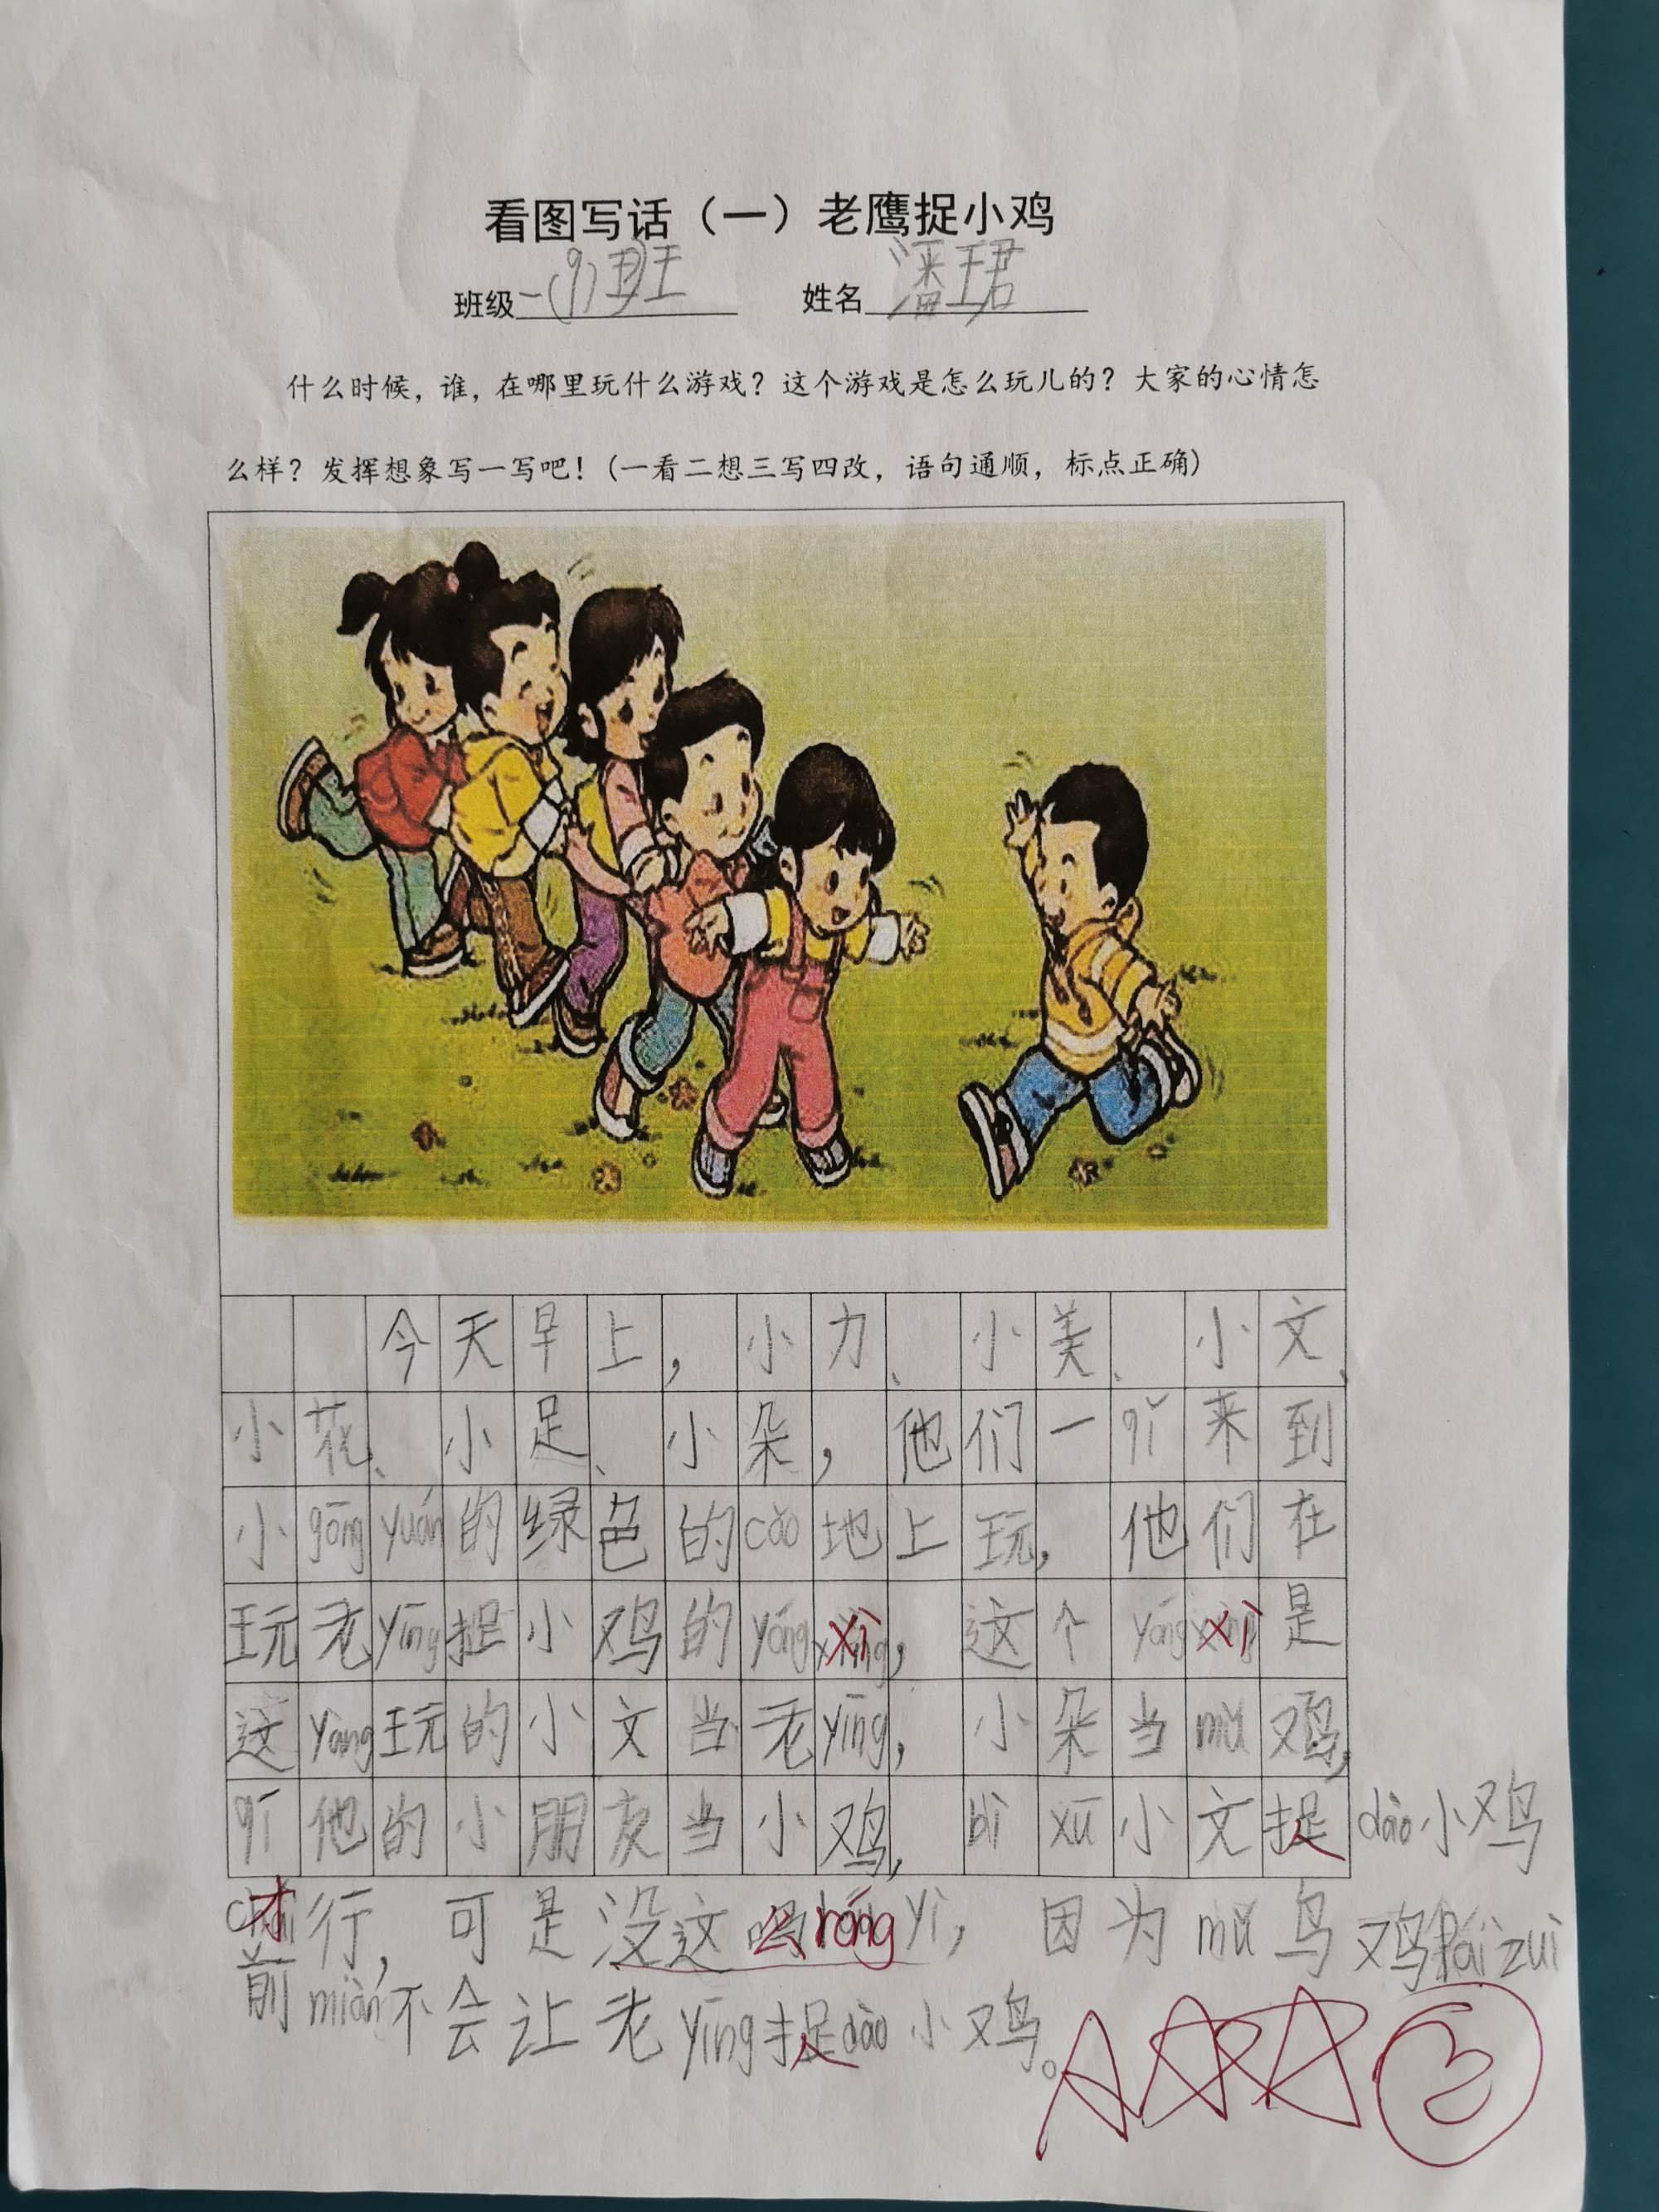 看图写话（一）老鹰捉小鸡
班级一(9)班 姓名潘珺
什么时候，谁，在哪里玩什么游戏？这个游戏是怎么玩儿的？大家的心情怎
么样？发挥想象写一写吧！(一看二想三写四改，语句通顺，标点正确)
今天早上，小力、小美、小文、
小花、小足、小朵，他们一qǐ来到
小gōngyuán的绿色的cǎo地上玩，他们在
玩老yīng捉小鸡的yóuxì，这个yóuxì是
这yang玩的小文当老yīng，小朵当mǔ鸡，
qí他的小朋友当小鸡，bì xū小文捉dào小鸡
才行，可是没这么róngyì，因为mǔ鸟鸡pái zuì
前miàn不会让老yīng捉dào小鸡。